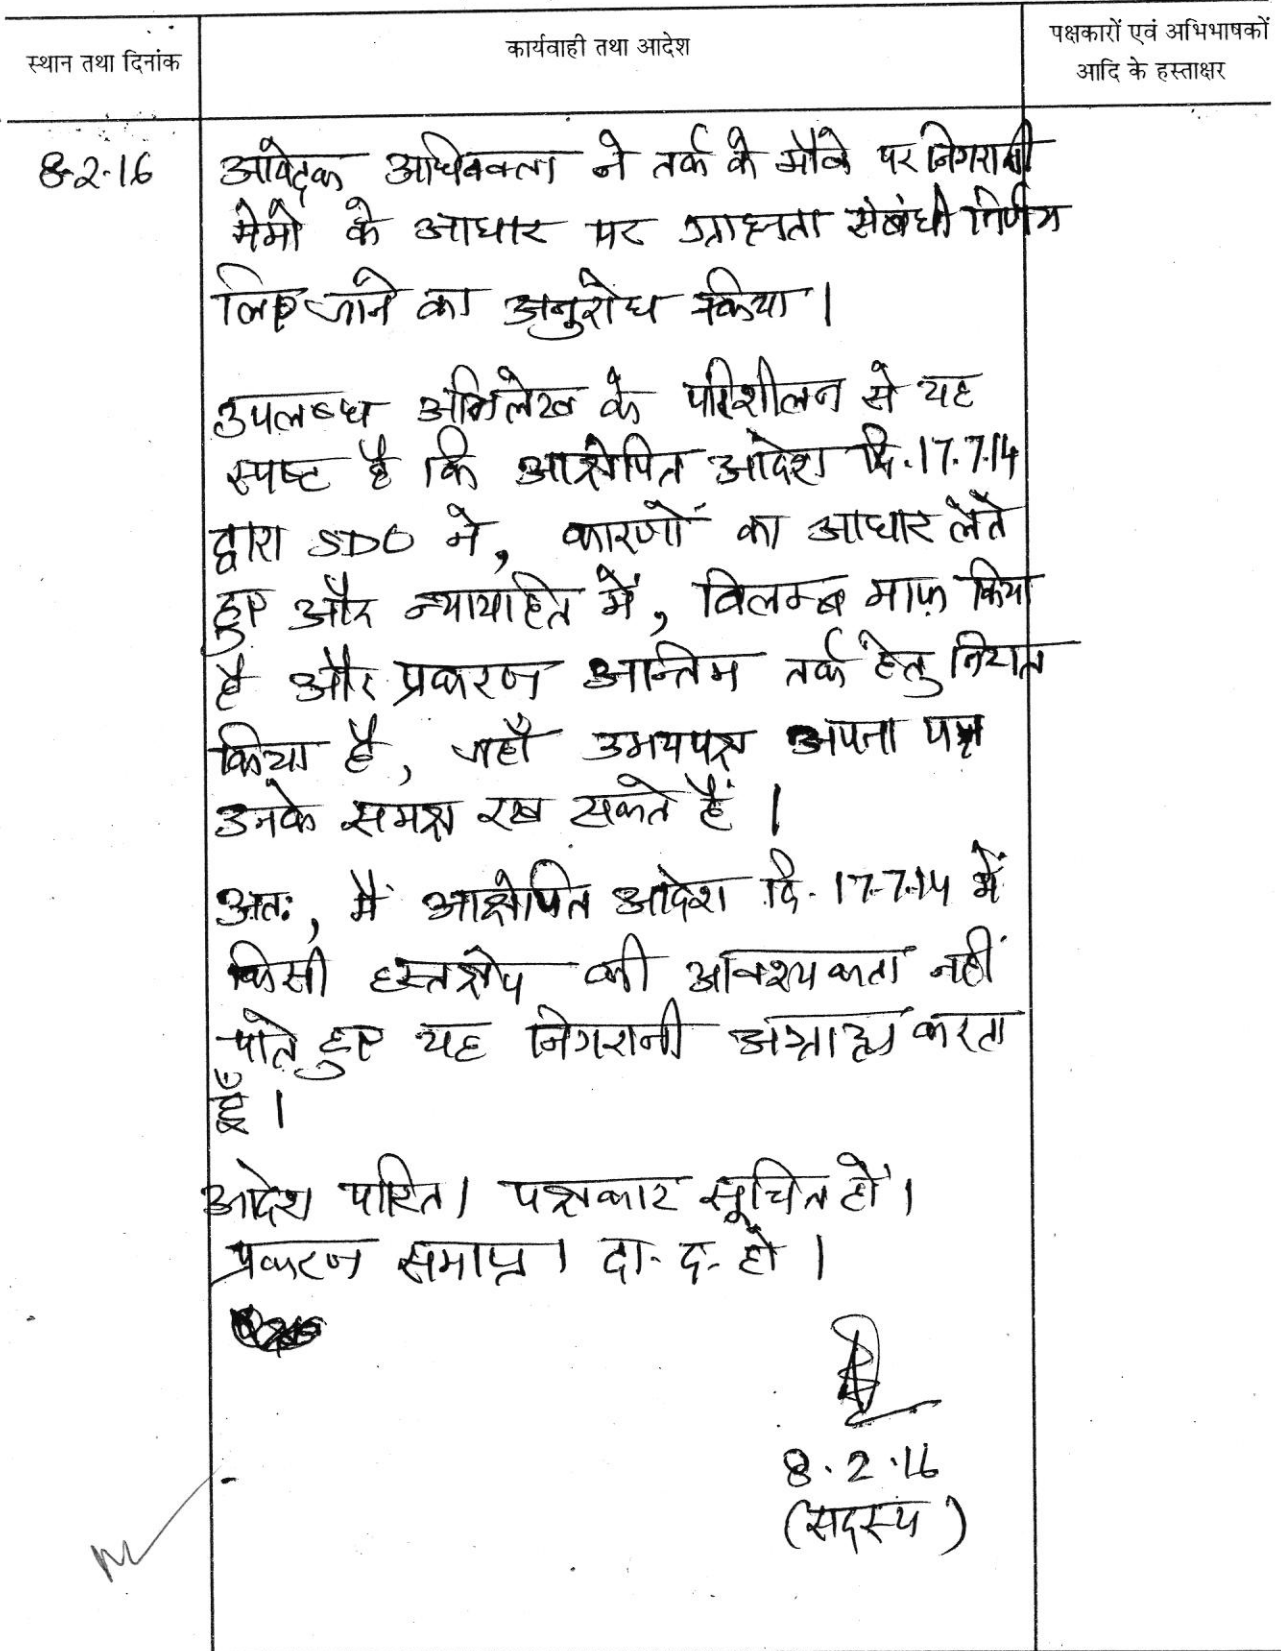 स्थान तथा दिनांक
कार्यवाही तथा आदेश
पक्षकारों एवं अभिभाषकों
आदि के हस्ताक्षर
8.2.16
आवेदक अधिवक्ता ने तर्क के मौके पर निगरानी
मेमो के आधार पर ग्राह्यता संबंधी निर्णय
लिए जाने का अनुरोध किया।
उपलब्ध अभिलेख के परिशीलन से यह
स्पष्ट है कि आक्षेपित आदेश दि. 17.7.14
द्वारा SDO ने, कारणों का आधार लेते
हुए और न्यायहित में, विलम्ब माफ़ किया
है और प्रकरण अन्तिम तर्क हेतु नियत
किया है, जहाँ उभयपक्ष अपना पक्ष
उनके समक्ष रख सकते हैं।
अतः, मैं आक्षेपित आदेश दि. 17.7.14 में
किसी हस्तक्षेप की आवश्यकता नहीं
पाते हुए यह निगरानी अग्राह्य करता
हूँ।
आदेश पारित। पक्षकार सूचित हों।
प्रकरण समाप्त। दा. द. हो।
8.2.16
(सदस्य)